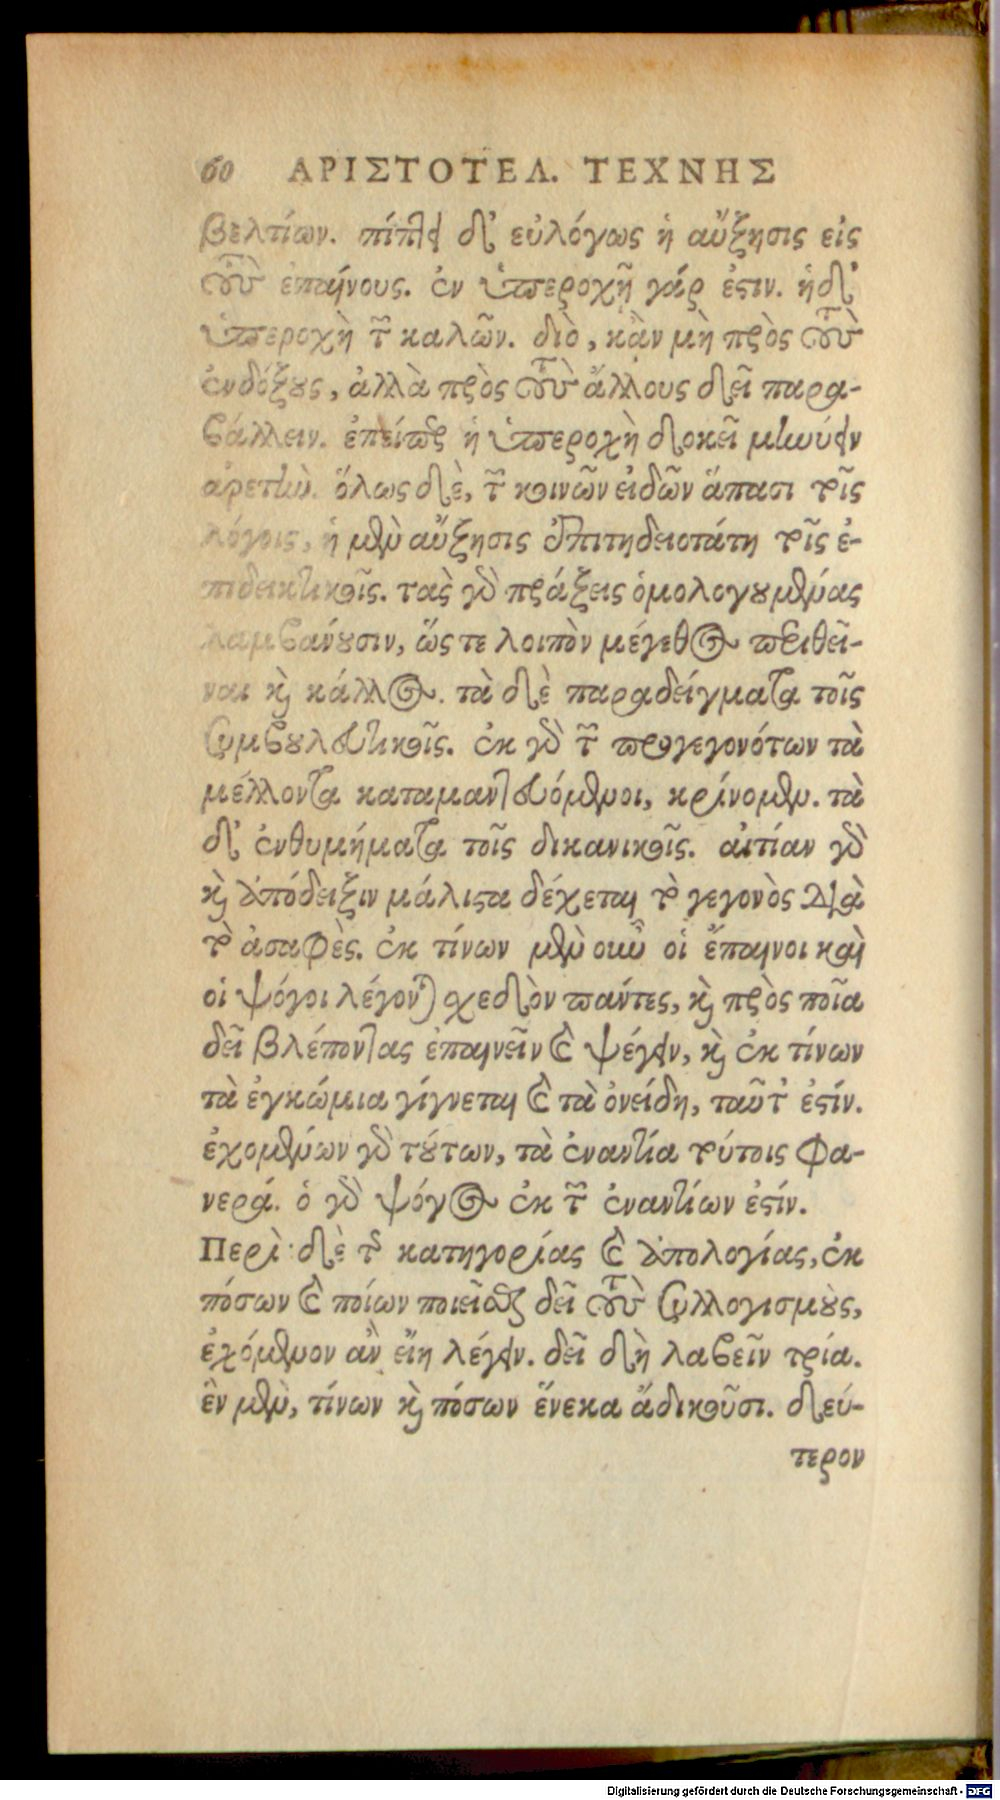 60 ΑΡΙΣΤΟΤΕΛ. ΤΕΧΝΗΣ
βελτίων. πίπτει δ' εὐλόγως ἡ αὔξησις εἰς
τοὺς ἐπαίνους. ἐν ὑπεροχῇ γάρ ἐστιν. ἡ δ'
ὑπεροχὴ τῶν καλῶν. διὸ, κἂν μὴ πρὸς τοὺς
ἐνδόξους, ἀλλὰ πρὸς τοὺς ἄλλους δεῖ παρα-
βάλλειν. ἐπείπερ ἡ ὑπεροχὴ δοκεῖ μηνύειν
ἀρετήν. ὅλως δὲ, τῶν κοινῶν εἰδῶν ἅπασι τοῖς
λόγοις, ἡ μὲν αὔξησις ἐπιτηδειοτάτη τοῖς ἐ-
πιδεικτικοῖς. τὰς γὰρ πράξεις ὁμολογουμένας
λαμβάνουσιν, ὥς τε λοιπὸν μέγεθος περιθεῖ-
ναι καὶ κάλλος. τὰ δὲ παραδείγματα τοῖς
συμβουλευτικοῖς. ἐκ γὰρ τῶν προγεγονότων τὰ
μέλλοντα καταμαντευόμενοι, κρίνομεν. τὰ
δ' ἐνθυμήματα τοῖς δικανικοῖς. αἰτίαν γὰρ
καὶ ἀπόδειξιν μάλιστα δέχεται τὸ γεγονὸς διὰ
τὸ ἀσαφὲς. ἐκ τίνων μὲν οὖν οἱ ἔπαινοι καὶ
οἱ ψόγοι λέγονται σχεδὸν πάντες, καὶ πρὸς ποῖα
δεῖ βλέποντας ἐπαινεῖν καὶ ψέγειν, καὶ ἐκ τίνων
τὰ ἐγκώμια γίγνεται καὶ τὰ ὀνείδη, ταῦτ' ἐστίν.
ἐχομένων γὰρ τούτων, τὰ ἐναντία τούτοις φα-
νερά. ὁ γὰρ ψόγος ἐκ τῶν ἐναντίων ἐστίν.
Περὶ δὲ τῆς κατηγορίας καὶ ἀπολογίας, ἐκ
πόσων καὶ ποίων ποιεῖσθαι δεῖ τοὺς συλλογισμοὺς,
ἐχόμενον ἂν εἴη λέγειν. δεῖ δὴ λαβεῖν τρία.
ἓν μὲν, τίνων καὶ πόσων ἕνεκα ἀδικοῦσι. δεύ-
τερον
Digitalisierung gefördert durch die Deutsche Forschungsgemeinschaft - DFG